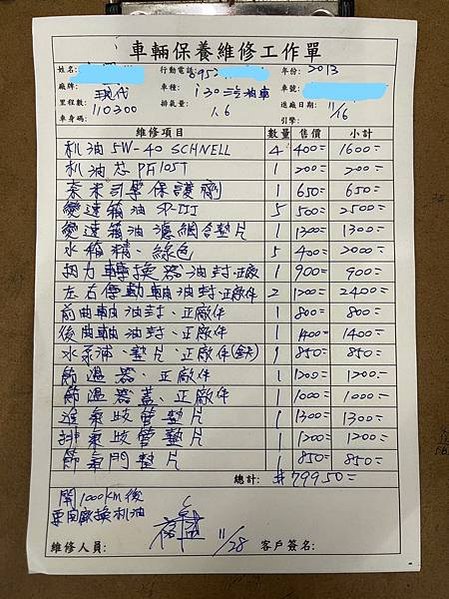 車輛保養維修工作單
姓名: 行動電話: 0952 年份: 2013
廠牌: 現代 車種: i30 汽油車 車號:
里程數: 110300 排氣量: 1.6 送廠日期: 11/16
車身碼: 引擎:
維修項目 數量 售價 小計
机油 5W-40 SCHNELL 4 400= 1600=
机油芯 PF105T 1 200= 200=
奈米引擎保護劑 1 650= 650=
變速箱油 SP-III 5 500= 2500=
變速箱油濾網含墊片 1 1300= 1300=
水箱精、綠色 5 400= 2000=
扭力轉換器油封、正廠 1 900= 900=
左右傳動軸油封、正廠件 2 1200= 2400=
前曲軸油封、正廠件 1 800= 800=
後曲軸油封、正廠件 1 1400= 1400=
水泵浦、墊片、正廠件 1 850= 850=
節溫器、正廠件 1 1200= 1200=
節溫器蓋、正廠件 1 1000= 1000=
進氣歧管墊片 1 1300= 1300=
排氣歧管墊片 1 1200= 1200=
節氣門墊片 1 850= 850=
總計: $79950=
開1000km後
要回廠換机油
11/28
維修人員: 客戶簽名: